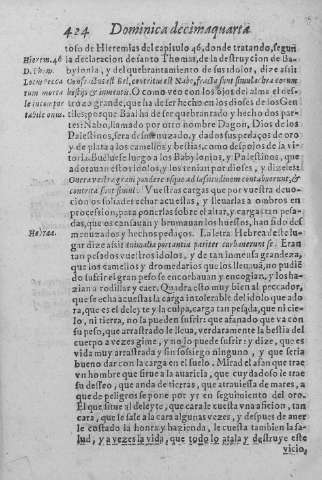 424 Dominica decimaquarta
toso de Hieremias del capitulo 46, donde tratando, segun
Hierem. 46 la declaracion de santo Thomas, de la destruycion de Ba-
D. Thom. bylonia, y del quebrantamiento de sus idolos, dize assi:
Confractus est Bel, contritus est Nabo, facta sunt simulachra eorum
bestijs & iumentis. O como veo con los ojos del alma el des-
trozo grande, que ha de ser hecho en los dioses de los Gen-
tiles; porque Baal ha de ser quebrantado y hecho dos par-
tes: Nabo, llamado por otro nombre Dagon, Dios de los
Palestinos, sera desmenuzado, y dados sus pedaços de oro
y de plata a los camellos y bestias: como despojos de la vi-
toria. Buelue se luego a los Babylonios, y Palestinos, que
adorauan estos idolos, y los tenian por dioses, y dizeles:
Onera vestra graui pondere vsque ad lassitudinem contabuerunt, &
contrita sunt simul. Vuestras cargas que por vuestra deuo-
cion os soliades echar acuestas, y lleuarlas a ombros en
procession, para ponerlas sobre el altar, y cargas tan pesa-
das, que os cansauan y brumauan los huessos, han sido des-
menuzados y hechos pedaços. La letra Hebrea deste lu-
gar dize assi: animalia portantia pariter curbauerunt se. Eran
tan pesados vuestros idolos, y de tan inmensa grandeza,
que los camellos y dromedarios que los lleuauan, no pudie
do sufrir el gran peso se encorbauan y encogian, y los ha-
zian arrodillar y caer. Quadra esto muy bien al peccador,
que se echa acuestas la carga intolerable del idolo que ado
ra, que es el deleyte y la culpa, carga tan pesada, que ni cie-
lo, ni tierra, no la pueden sufrir: que afanado que va con
su peso, que arrastrado le lleua, verdaramente la bestia del
cuerpo a vezes gime, y no lo puede sufrir: y dize, que es
vida muy arrastrada y sin sossiego ninguno, y que seria
bueno dar con la carga en el suelo. Mirad el afan que trae
vn hombre que sirue a la auaricia, que cuydadoso le trae
su desseo, que anda de tierras, que atrauiessa de mares, a
que de peligros se pone por yr en seguimiento del oro.
El que sirue al deleyte, que cara le cuesta vna aficion, tan
cara, que le sale a la cara algunas vezes, y despues de auer
le costado la honra y hazienda, le cuesta tambien la sa-
lud, y a vezes la vida, que todo lo atala y destruye este
vicio,